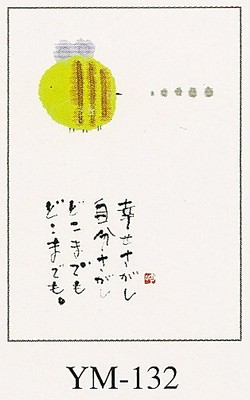 幸せさがし
自分さがし
どこまでも
どこまでも。
YM-132